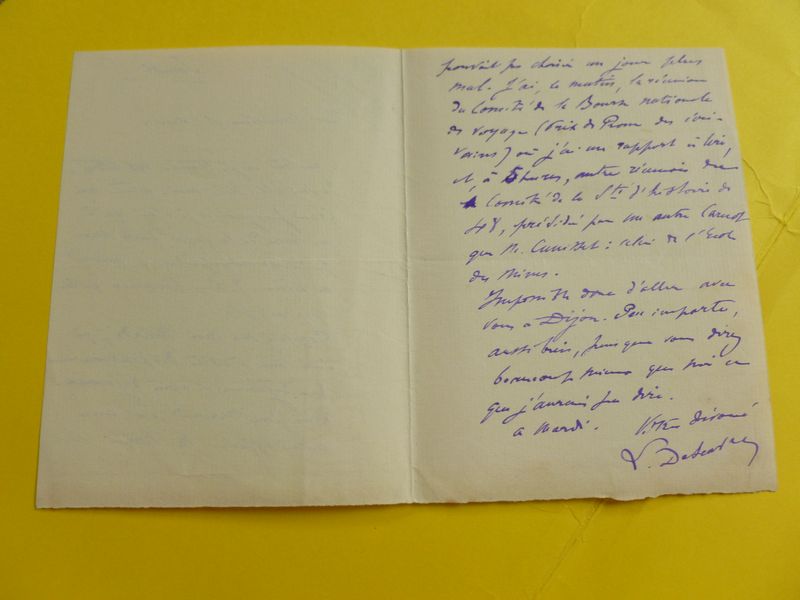 pouvait pas choisir un jour plus
mal. J'ai, le matin, la réunion
du Comité de la Bourse nationale
de voyage (Prix de Rome des écri-
vains) où j'ai un rapport à lire,
et, à 5 heures, autre réunion du
Comité de la Sté d'histoire de
48, présidé par un autre Carnot
que M. Cunisset : celui de l'École
des Mines.
Impossible donc d'aller avec
vous à Dijon. Peu importe,
aussi bien, puisque vous direz
beaucoup mieux que moi ce
que j'aurais pu dire.
à mardi. Votre dévoué
L. Descaves